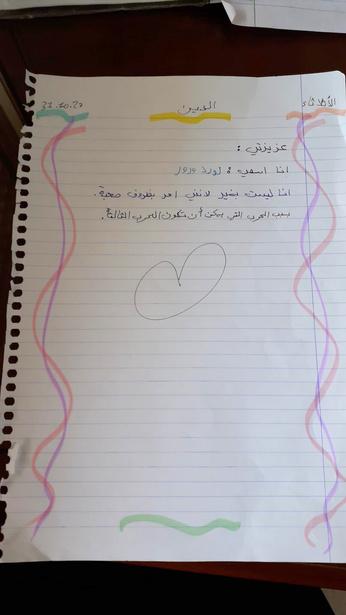 الأطلثاء الحنين 31.10.23
عزيزتي :
انا اسمي :
انا ليست بخير لانني امر بظروف صعبة.
بسبب الحرب التي يمكن أن تكون الحرب الثالثة.